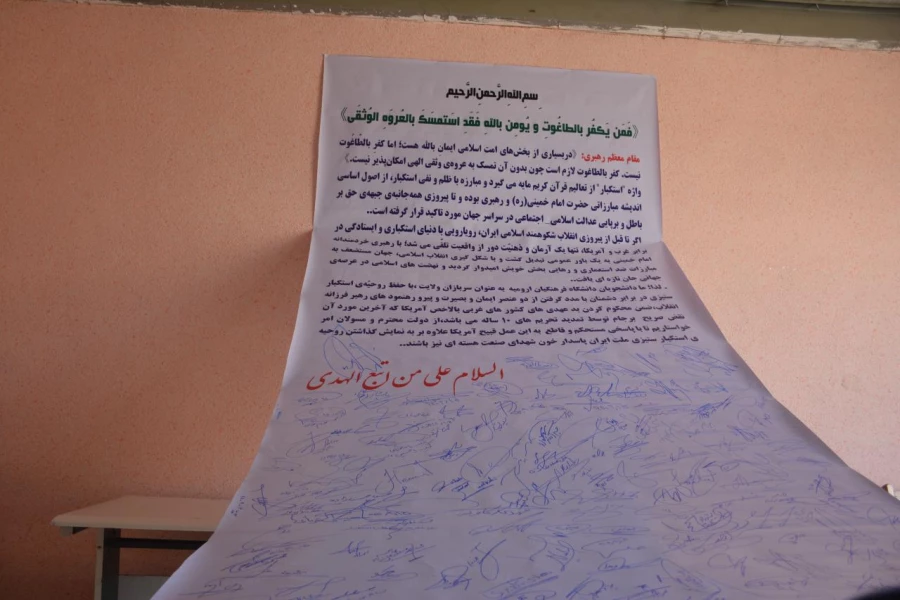 بسم الله الرحمن الرحیم
﴿فَمَن یَکفُر بالطاغُوتِ و یُومِن باللهِ فَقَدِ استَمسَکَ بالعُروَهِ الوُثقَی﴾
مقام معظم رهبری: 《دربسیاری از بخش‌های امت اسلامی ایمان بالله هست؛ اما کفر بالطاغوت
نیست. کفر بالطاغوت لازم است چون بدون آن تمسک به عروه‌ی وثقی الهی امکان‌پذیر نیست.》
واژه "استکبار" از تعالیم قرآن کریم مایه می گیرد و مبارزه با ظلم و نفی استکبار، از اصول اساسی
اندیشه مبارزاتی حضرت امام خمینی(ره) و رهبری بوده و تا پیروزی همه‌جانبه‌ی جبهه‌ی حق بر
باطل و برپایی عدالت اسلامی_ اجتماعی در سراسر جهان مورد تاکید قرار گرفته است..
اگر تا قبل از پیروزی انقلاب شکوهمند اسلامی ایران، رویارویی با دنیای استکباری و ایستادگی در
برابر غرب و آمریکا، تنها یک آرمان و ذهنیّت دور از واقعیت تلقّی می شد؛ با رهبری خردمندانه
امام خمینی به یک باور عمومی تبدیل گشت و با شکل گیری انقلاب اسلامی، جهان مستضعف به
مبارزات ضد استعماری و رهایی بخش خویش امیدوار گردید و نهضت های اسلامی در عرصه‌ی
جهانی جان تازه ای یافت..
. لذا؛ ما دانشجویان دانشگاه فرهنگیان ارومیه به عنوان سربازان ولایت ،با حفظ روحیّه‌ی استکبار
ستیزی در برابر دشمنان با مدد گرفتن از دو عنصر ایمان و بصیرت و پیرو رهنمود های رهبر فرزانه
انقلاب،ضمن محکوم کردن بد عهدی های کشور های غربی بالاخص آمریکا که آخرین مورد آن
نقض صریح برجام توسط تمدید تحریم های ۱۰ ساله می باشد،از دولت محترم و مسولان امر
خواستاریم تا با پاسخی مستحکم و قاطع به این عمل قبیح آمریکا علاوه بر به نمایش گذاشتن روحیه
ی استکبار ستیزی ملت ایران پاسدار خون شهدای صنعت هسته ای نیز باشند..
السلام علی من اتبع الهدی